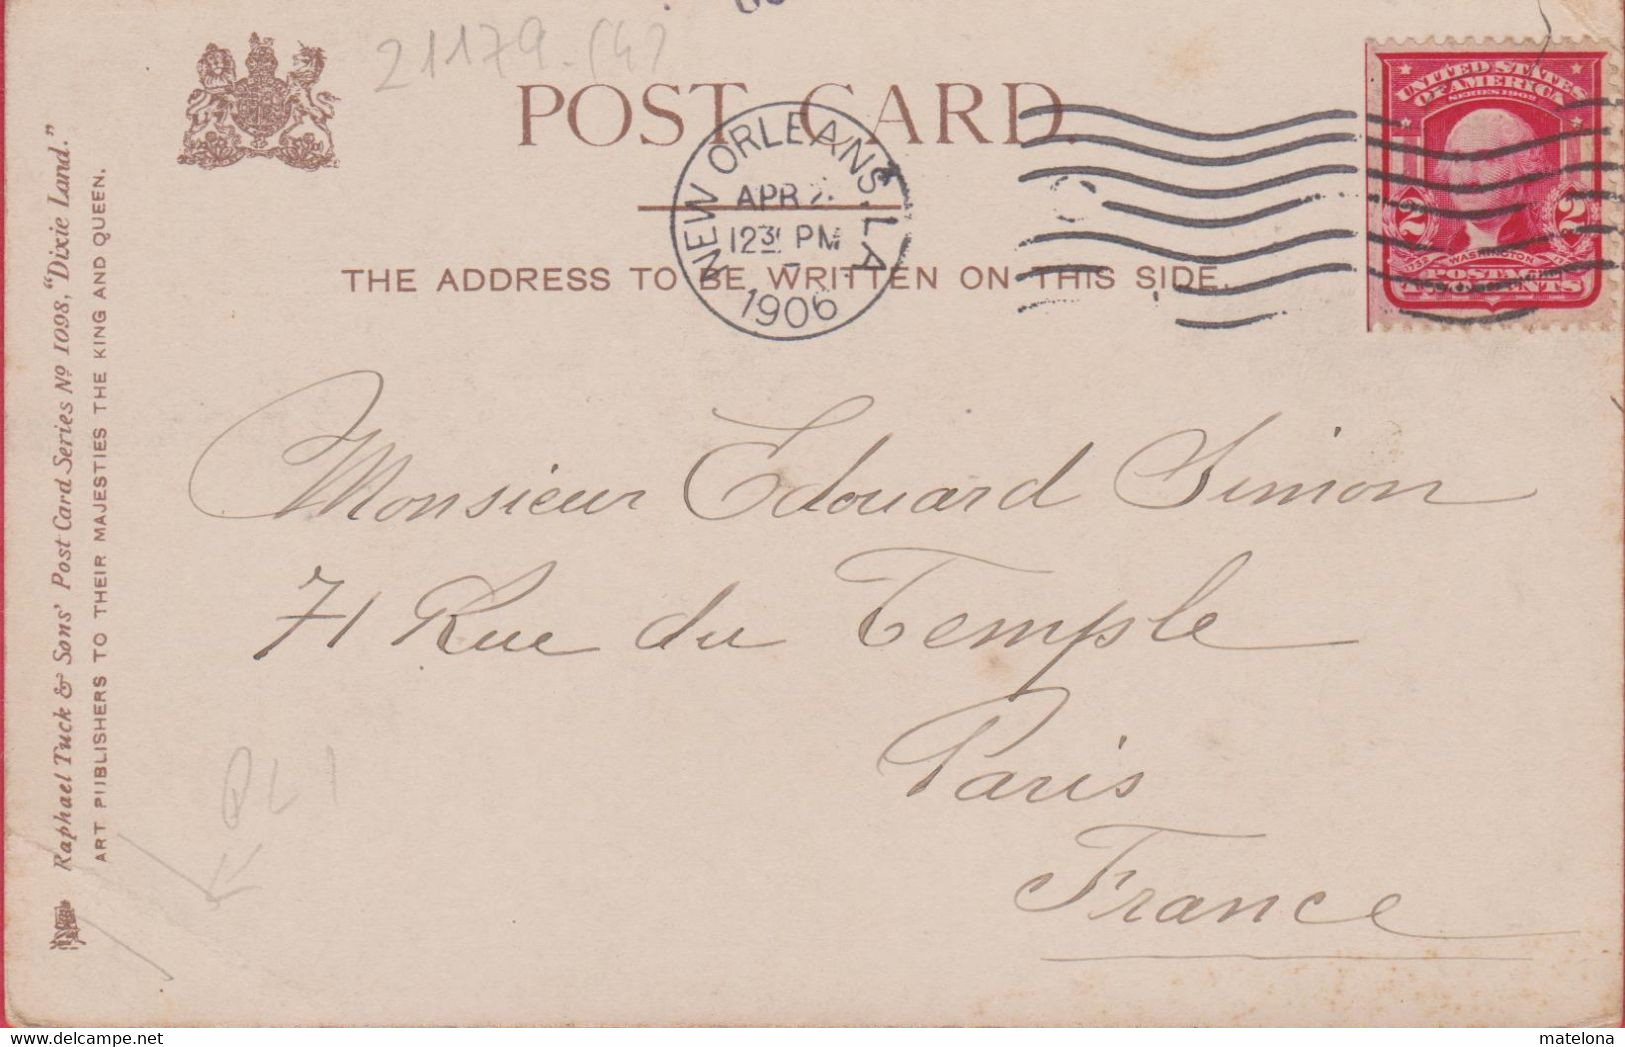 21179-(4)
POST CARD.
NEW ORLEANS, LA
APR 2
12 30 PM
1906
UNITED STATES
OF AMERICA
SERIES 1902
2 2
WASHINGTON
POSTAGE
CENTS
THE ADDRESS TO BE WRITTEN ON THIS SIDE.
Raphael Tuck & Sons' Post Card Series Nº 1098, "Dixie Land."
ART PUBLISHERS TO THEIR MAJESTIES THE KING AND QUEEN.
Monsieur Edouard Simon
71 Rue du Temple
Paris
France
PL1
matelona